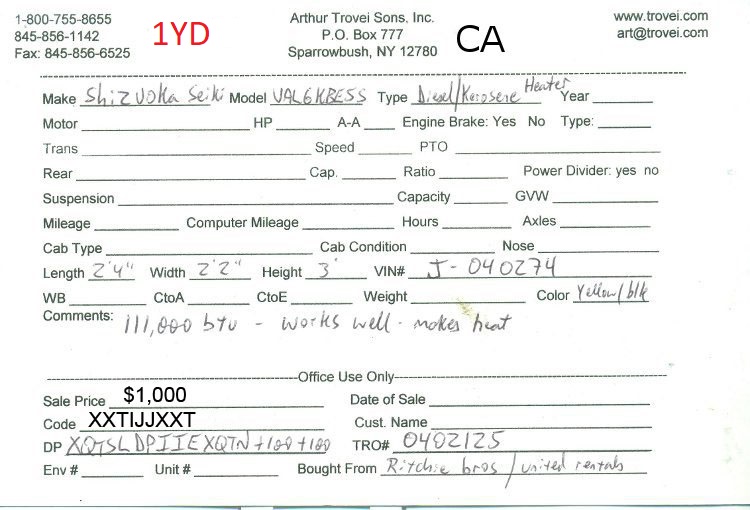 1-800-755-8655 1YD Arthur Trovei Sons, Inc. CA www.trovei.com
845-856-1142 P.O. Box 777 art@trovei.com
Fax: 845-856-6525 Sparrowbush, NY 12780
Make Shizuoka Seiki Model VAL6KBE5S Type Diesel/Kerosene Heater Year
Motor HP A-A Engine Brake: Yes No Type:
Trans Speed PTO
Rear Cap. Ratio Power Divider: yes no
Suspension Capacity GVW
Mileage Computer Mileage Hours Axles
Cab Type Cab Condition Nose
Length 2'4" Width 2'2" Height 3' VIN# J-040274
WB CtoA CtoE Weight Color Yellow/blk
Comments: 111,000 btu - works well - makes heat
Office Use Only
Sale Price $1,000 Date of Sale
Code XXTIJJXXT Cust. Name
DP XQTSLDPIIEXQTN +100 +100 TRO# 0402125
Env # Unit # Bought From Ritchie bros / united rentals